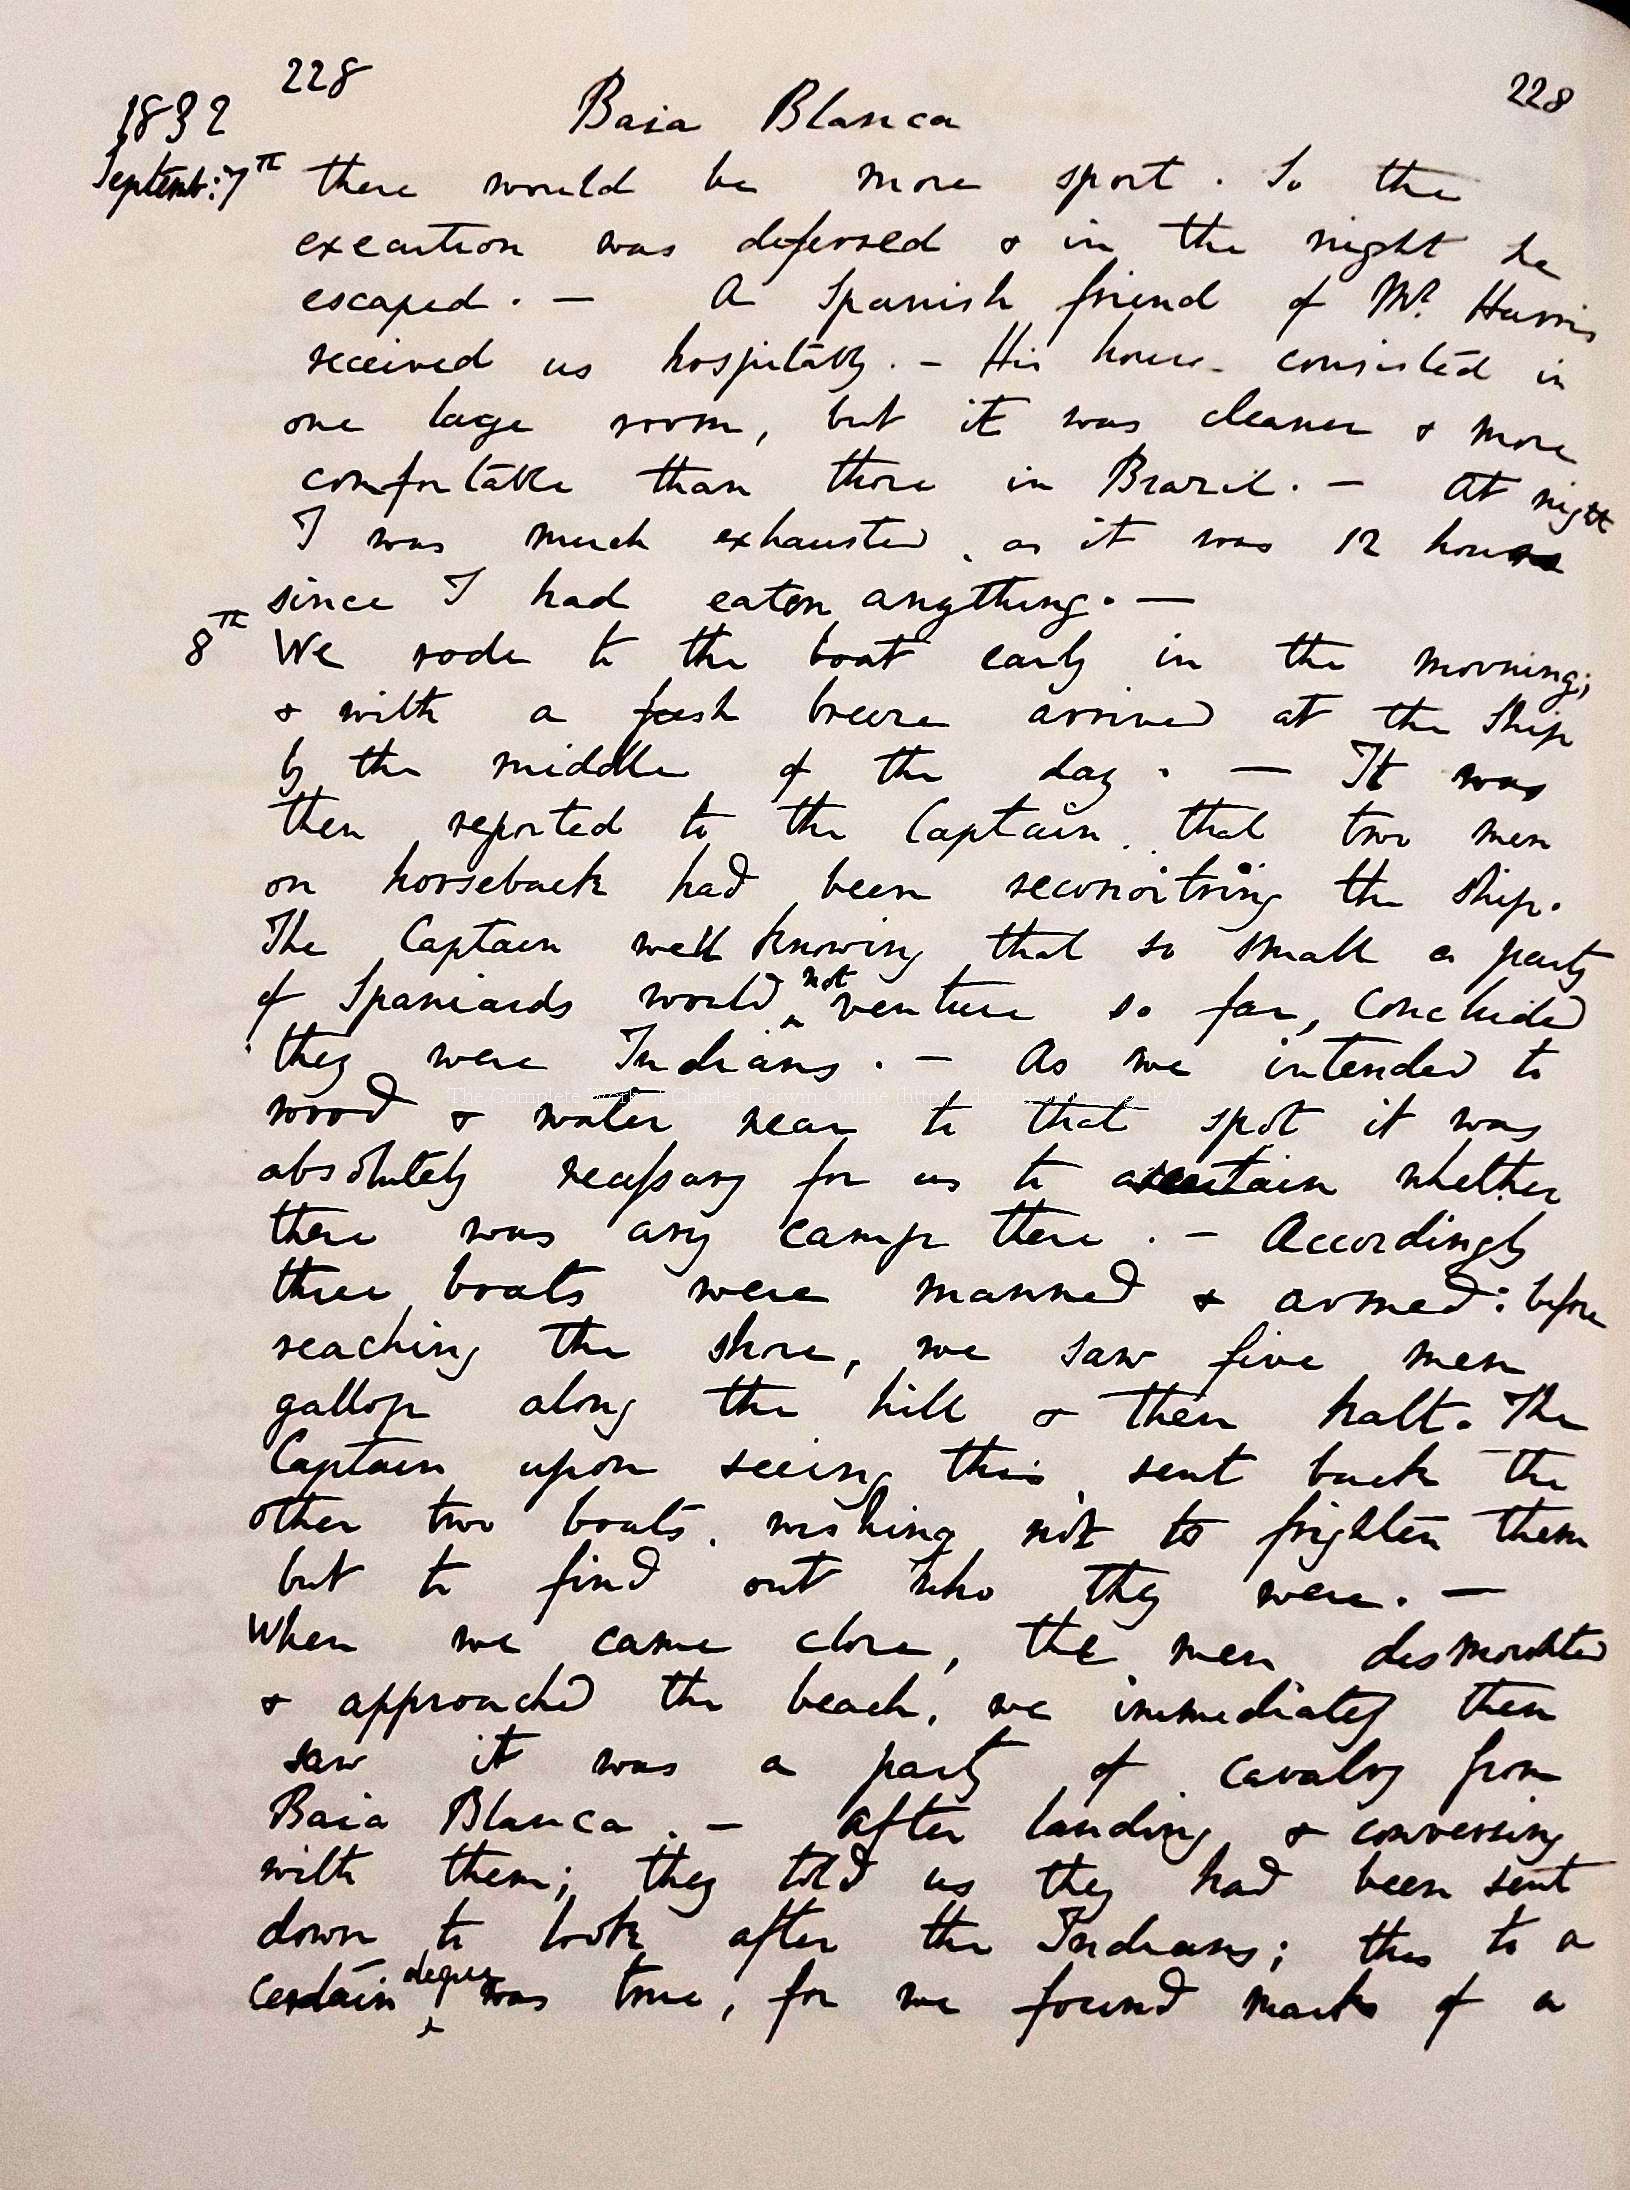 228
228
1832
Baia Blanca
Septemb: 7th there would be more sport. So the
execution was deferred & in the night he
escaped. — A Spanish friend of Mr. Harris
received us hospitably. — His house consisted in
one large room, but it was cleaner & more
comfortable than those in Brazil. — At night
I was much exhausted, as it was 12 hours
since I had eaten anything. —
8th We rode to the boat early in the morning;
& with a fresh breeze arrived at the Ship
by the middle of the day. — It was
then reported to the Captain, that two men
on horseback had been reconoitring the ship.
The Captain well knowing that so small a party
of Spaniards would not venture so far, concluded
they were Indians. — As we intended to
wood & water near to that spot it was
absolutely necessary for us to ascertain whether
there was any camp there. — Accordingly
three boats were manned & armed: before
reaching the shore, we saw five men
gallop along the hill & then halt. The
Captain upon seeing this sent back the
other two boats, wishing not to frighten them
but to find out who they were. —
When we came close, the men dismounted
& approached the beach, we immediately then
saw it was a party of cavalry from
Baia Blanca. — After landing & conversing
with them; they told us they had been sent
down to look after the Indians; this to a
certain degree was true, for we found marks of a
The Complete Work of Charles Darwin Online